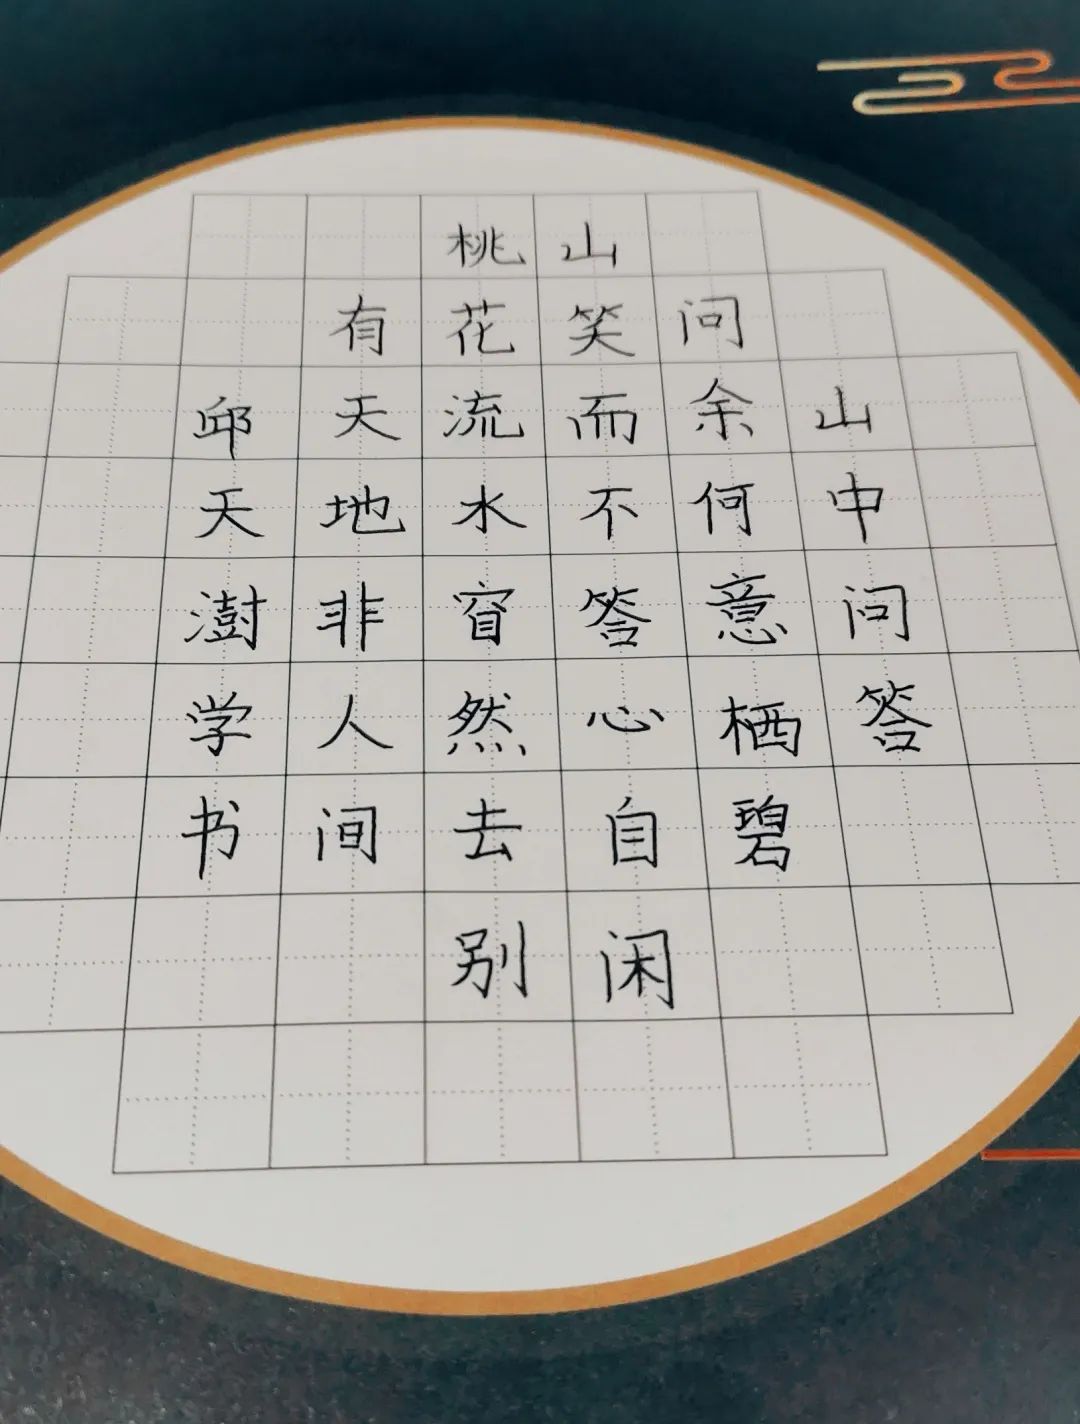 山中问答
问余何意栖碧
山笑而不答心自闲
桃花流水窅然去别
有天地非人间
邱天澍学书